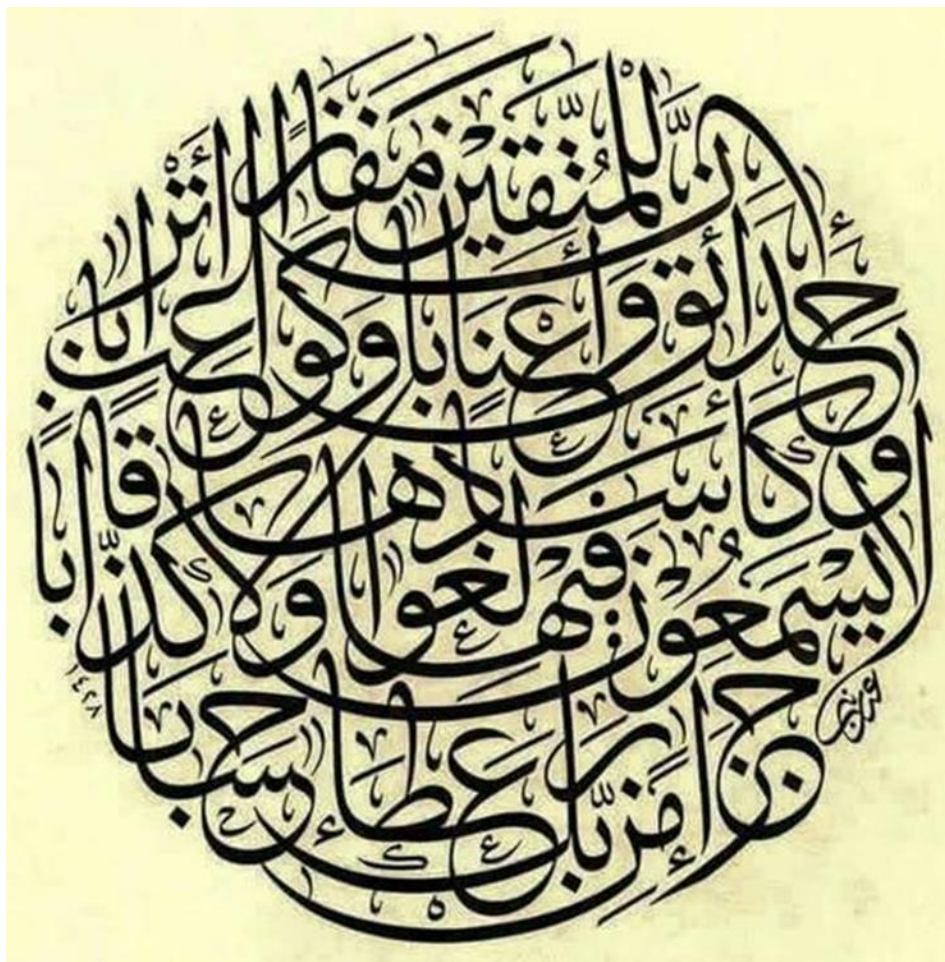 إِنَّ لِلْمُتَّقِينَ مَفَازًا
حَدَائِقَ وَأَعْنَابًا وَكَوَاعِبَ أَتْرَابًا
وَكَأْسًا دِهَاقًا
لَا يَسْمَعُونَ فِيهَا لَغْوًا وَلَا كِذَّابًا
جَزَاءً مِنْ رَبِّكَ عَطَاءً حِسَابًا
١٤٢٨